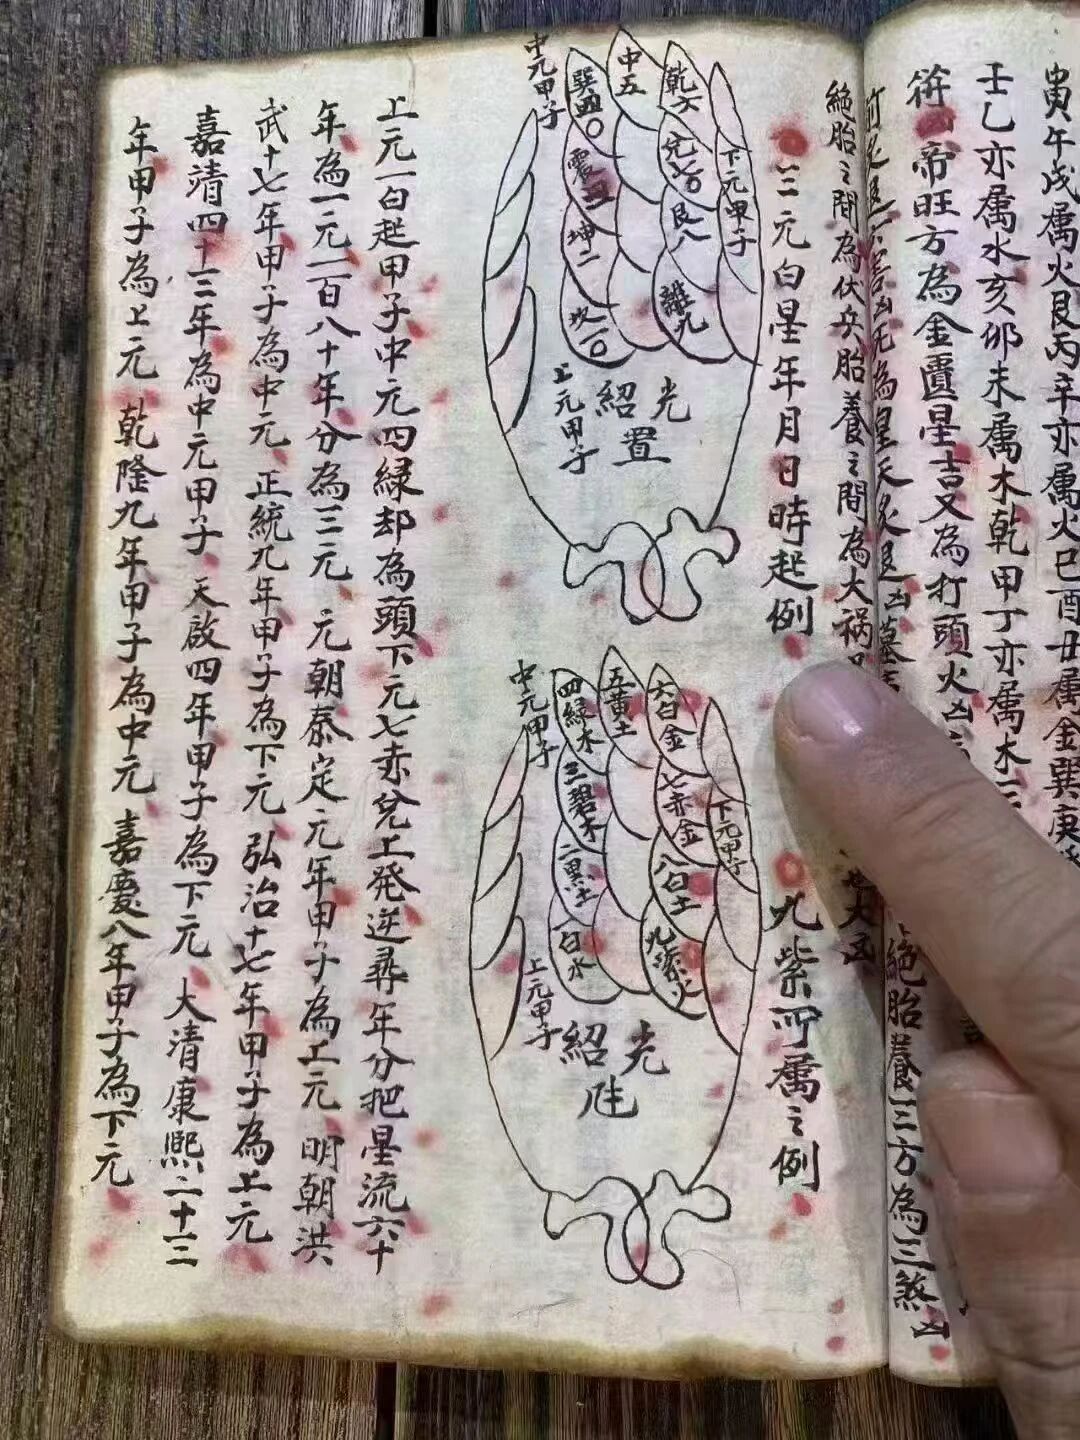 寅午戌属火艮丙辛亦属火巳酉丑属金巽庚
壬乙亦属水亥卯未属木乾甲丁亦属木
符 帝旺方為金匱星吉又為打頭火凶
絕胎養三方為三煞凶
絕胎之間為伏兵胎養之間為大禍
三元白星年月日時起例
九紫所属之例
中元甲子
巽四
中五
乾六
震三
兌七
下元甲子
坤二
艮八
坎一
離九
上元甲子
光
紹
置
中元甲子
四綠木
五黃土
六白金
三碧木
七赤金
下元甲子
二黑土
八白土
一白水
九紫火
上元甲子
光
紹
上元一白起甲子中元四綠却為頭下元七赤兌上発逆尋年分把星流六十
年為一元一百八十年分為三元元朝泰定元年甲子為上元明朝洪
武十七年甲子為中元正統九年甲子為下元弘治十七年甲子為上元
嘉清四十三年為中元甲子天啟四年甲子為下元大清康熙二十三
年甲子為上元乾隆九年甲子為中元嘉慶八年甲子為下元